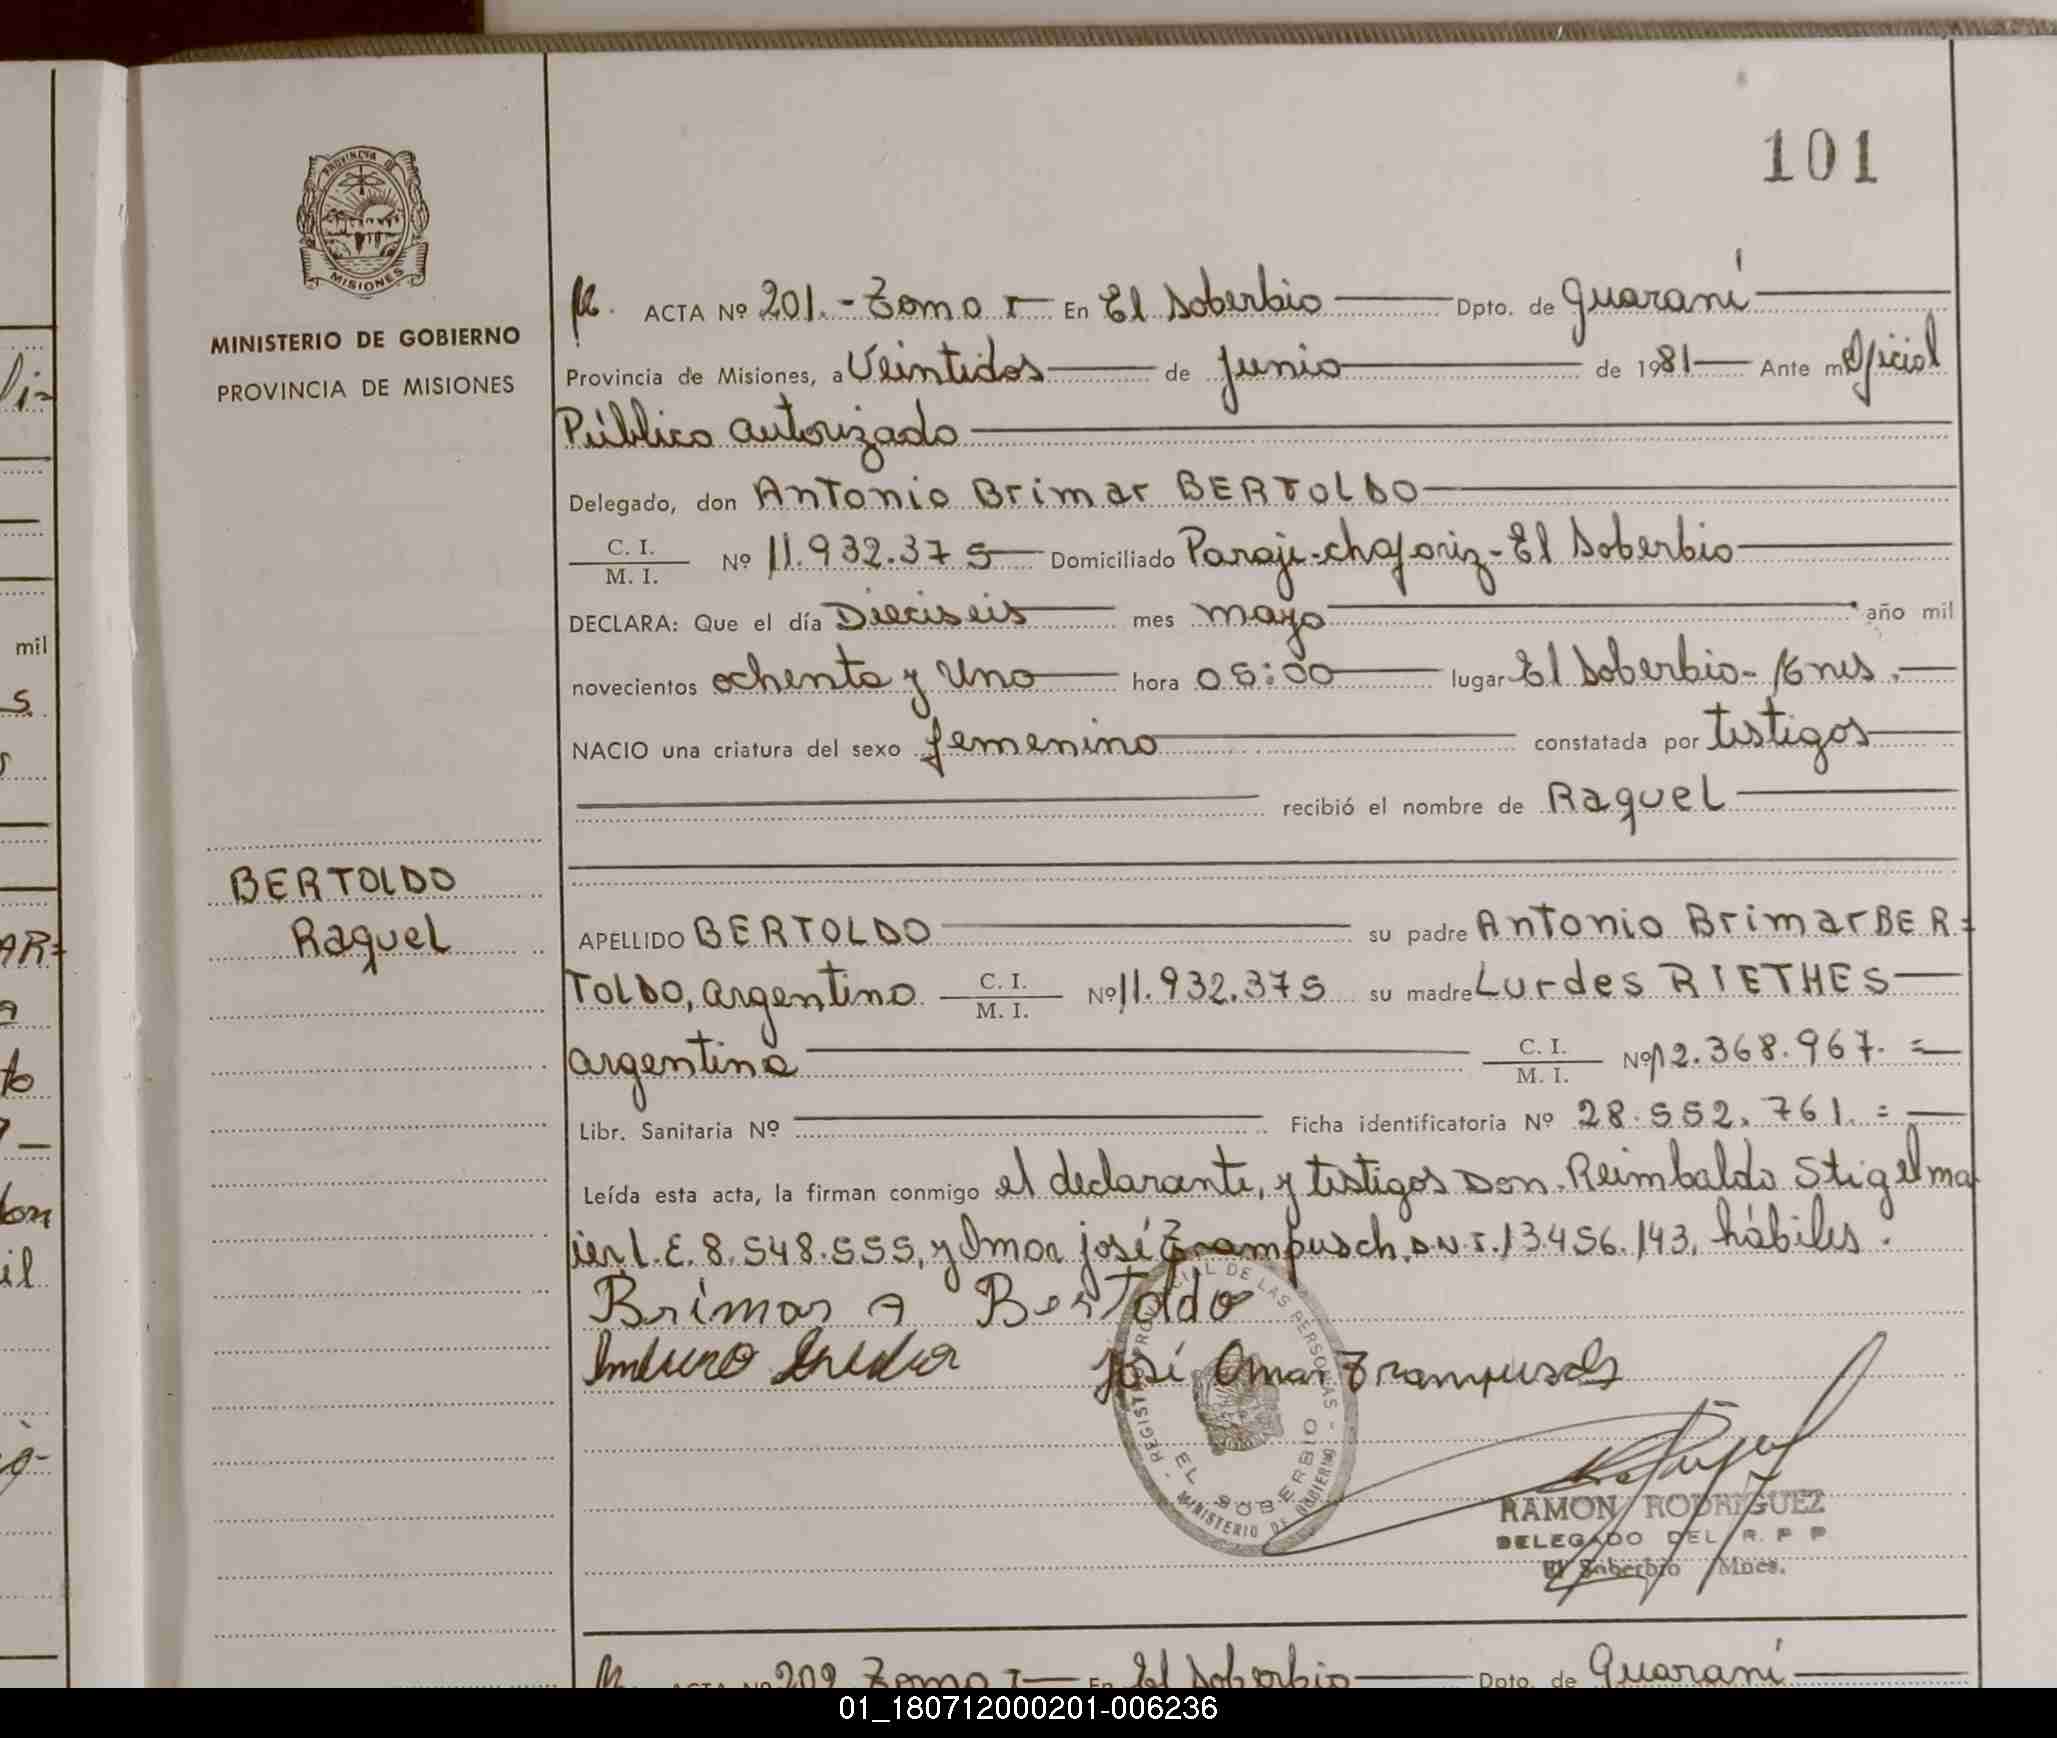 101
PROVINCIA DE
MISIONES
MINISTERIO DE GOBIERNO
PROVINCIA DE MISIONES
ACTA Nº 201.- Tomo I En El Soberbio Dpto. de Guaraní
Provincia de Misiones, a Veintidos de Junio de 1981 Ante mí Oficial
Público autorizado
Delegado, don Antonio Brimar BERTOLDO
C. I.
M. I.
Nº 11.932.375 Domiciliado Paraje-chafariz-El Soberbio
DECLARA: Que el día Dieciseis mes mayo año mil
novecientos ochenta y Uno hora 05:00 lugar El Soberbio-
NACIO una criatura del sexo femenino constatada por testigos
recibió el nombre de Raquel
BERTOLDO
Raquel
APELLIDO BERTOLDO su padre Antonio Brimar BER=
TOLDO, argentino C. I. M. I. Nº 11.932.375 su madre Lurdes RIETHES
argentina C. I. M. I. Nº 12.368.967.=
Libr. Sanitaria Nº Ficha identificatoria Nº 28.552.761.=
Leída esta acta, la firman conmigo el declarante, y testigos Don. Reimbaldo Stigelma
ier L.E. 8.548.555, y Omar josé Trampusch. D.N.I. 13.456.143, hábiles.
Brimar A Bertoldo
José Omar Trampusch
REGISTRO PROVINCIAL DE LAS PERSONAS
EL SOBERBIO
MINISTERIO DE GOBIERNO
RAMON RODRIGUEZ
DELEGADO DEL R. P P
El Soberbio Mnes.
ACTA Nº 202 Tomo I En El Soberbio Dpto. de Guaraní
01_180712000201-006236